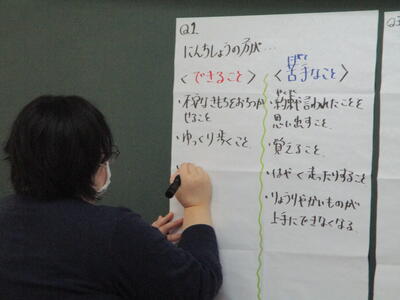 Q1.
にんちしょうの方が…
<できること>
・不安なきもちをおちつか
せること
・ゆっくり歩くこと
にがて
<苦手なこと>
やくそく
・約束や言われたことを
思い出すこと
・覚えること
・はやく走ったりすること
・りょうりやかいものが
上手にできなくなる
Q3